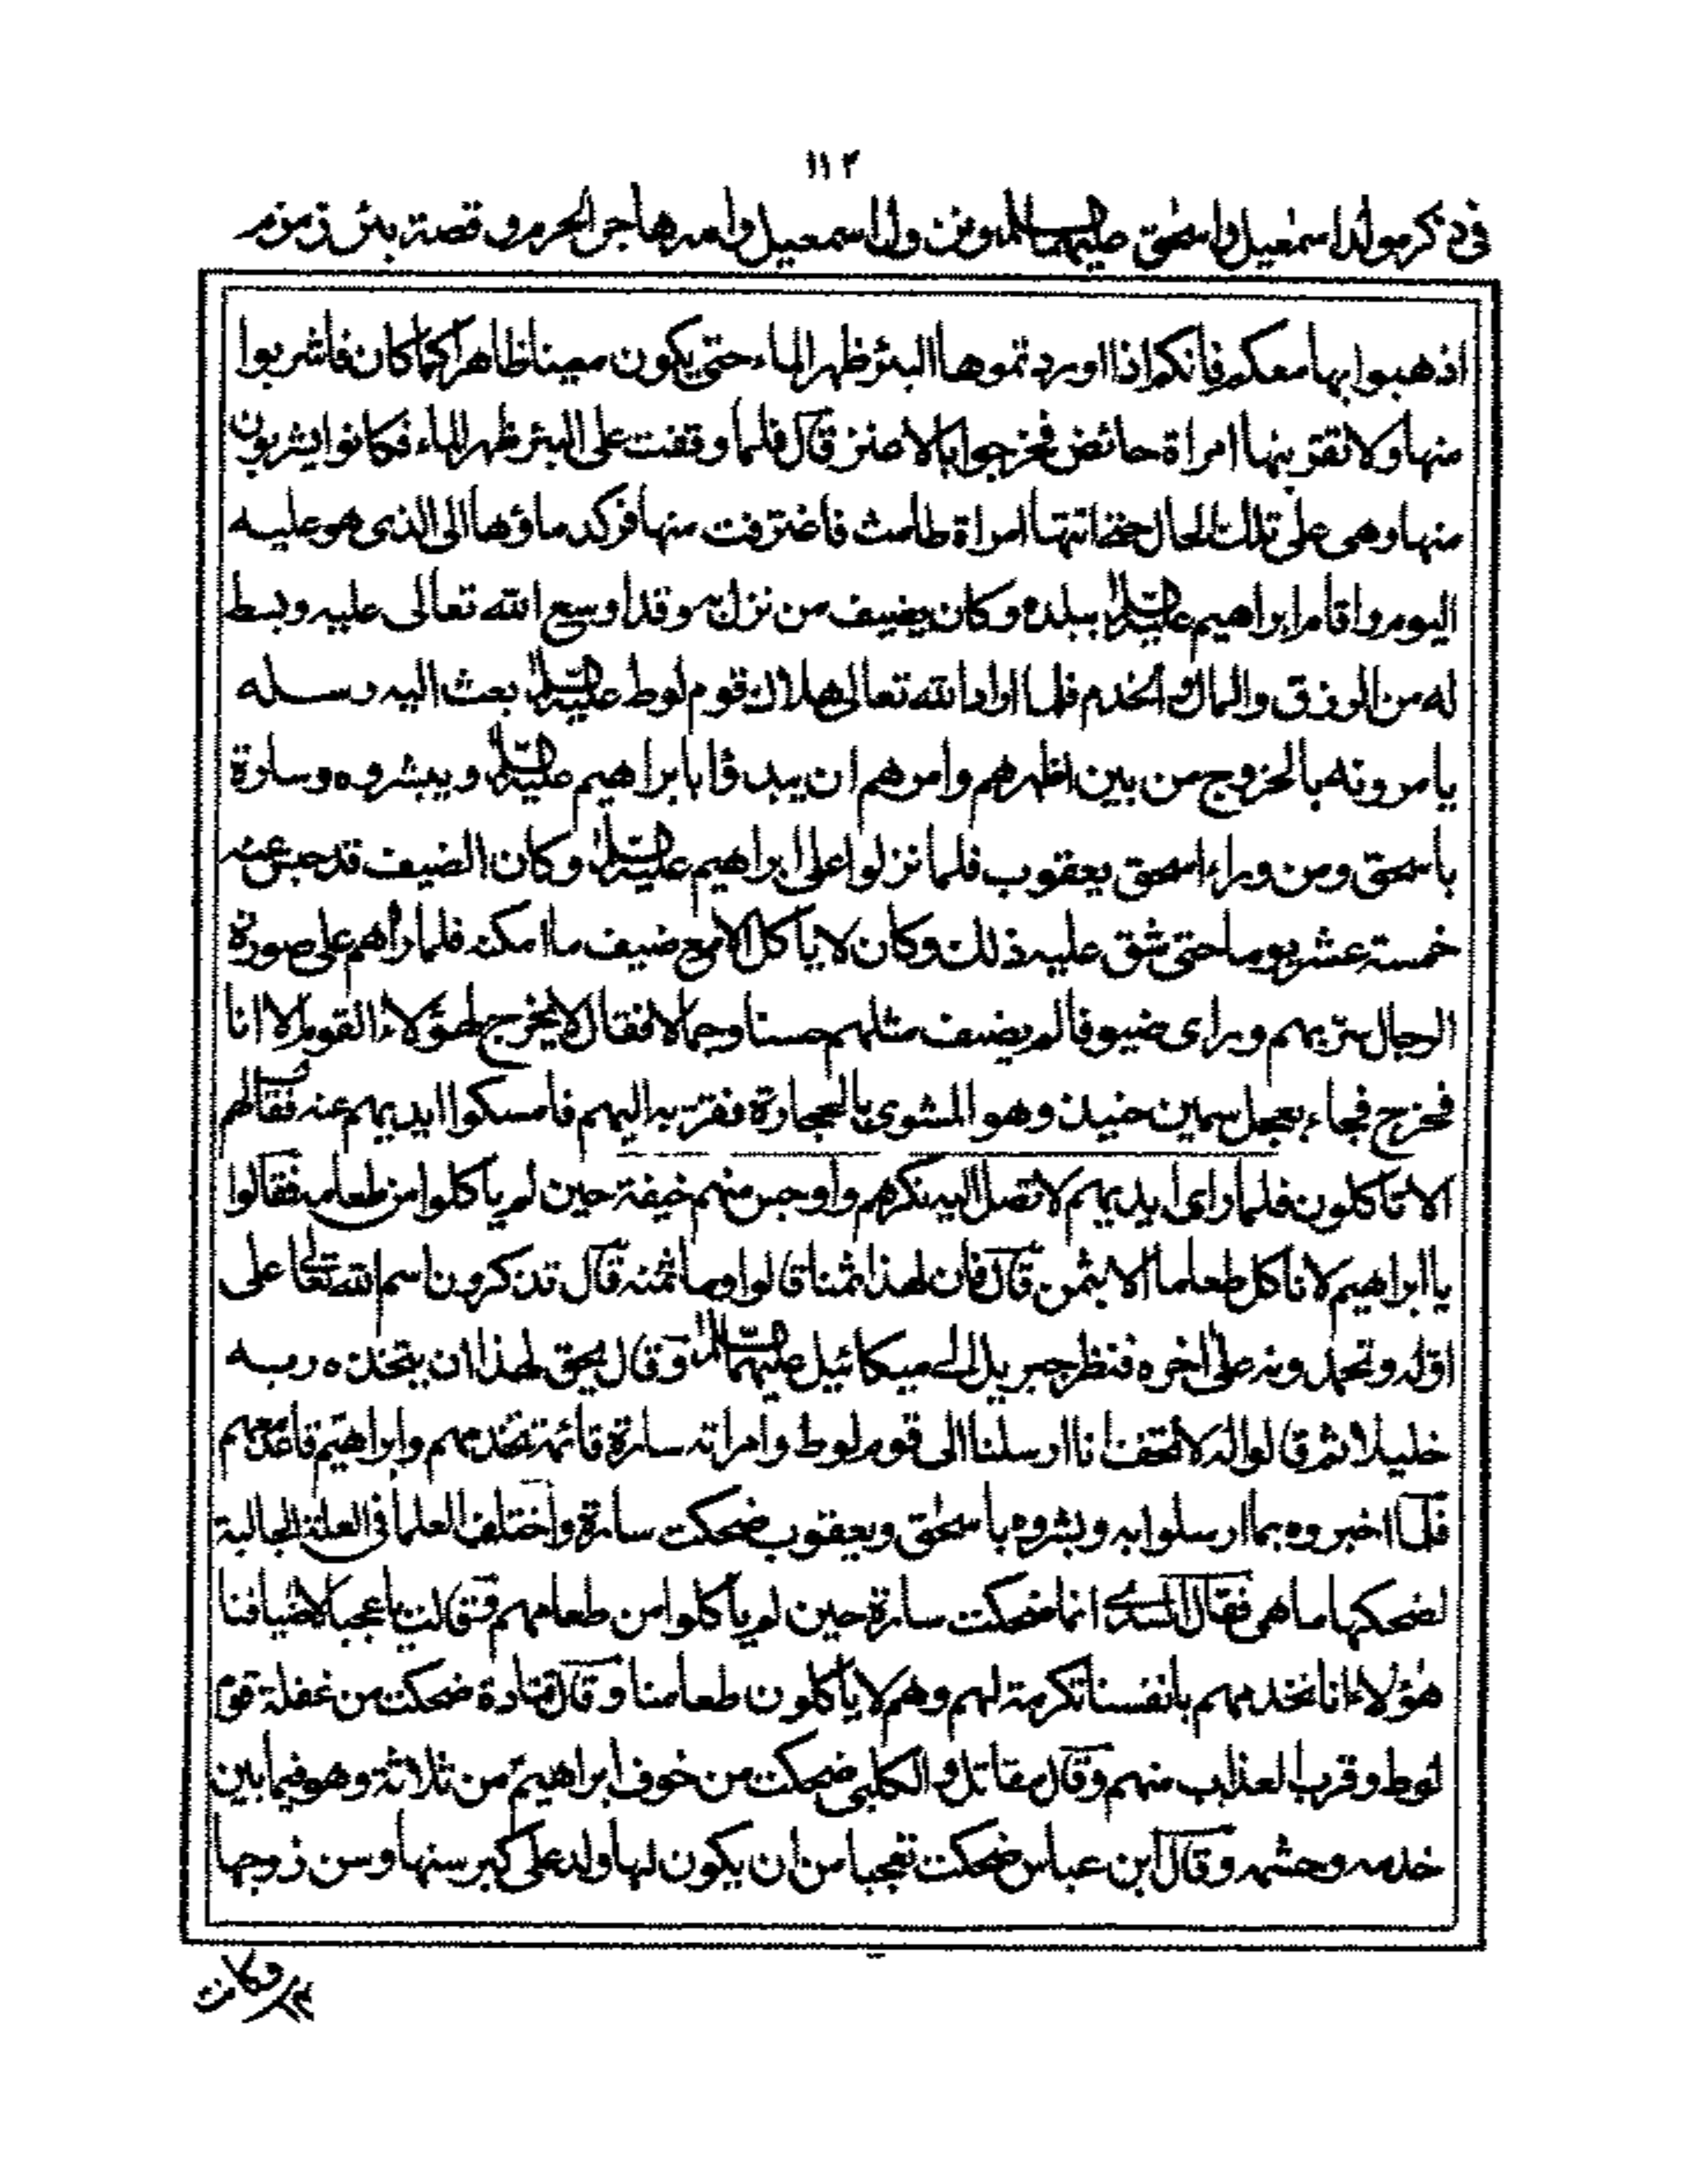 ١١٢
فی ذکر مولد اسمٰعیل واسحٰق علیهما السلام ونزول اسمعیل وامه هاجر الحرم و قصة بئر زمزم
اذهبوا بها معکم فانکم اذا اوردتموها البئر ظهر الماء حتی یکون معینا ظاهرا کما کان فاشربوا
منها ولا تقربنها امراة حائض فخرجوا بالاعنز قال فلما وقفت علی البئر ظهر الماء فکانوا یشربون
منها وهی علی تلك الحال حتی اتتها امراة طامث فاغترفت منها فرکد ماؤها الی الذی هو علیه
الیوم واقام ابراهیم علیه السلام ببلده وکان یضیف من نزل به وقد اوسع الله تعالی علیه وبسط
له من الرزق والمال والخدم فلما اراد الله تعالی هلاك قوم لوط علیه السلام بعث الیه رسله
یامرونه بالخروج من بین اظهرهم وامرهم ان یبدؤا بابراهیم علیه السلام ویبشروه وسارة
باسحق ومن وراء اسحق یعقوب فلما نزلوا علی ابراهیم علیه السلام وکان الضیف قد حبس عنه
خمسة عشر یوما حتی شق علیه ذلك وکان لا یاکل الا مع ضیف ما امکنه فلما راهم علی صورة
الرجال سر بهم ورای ضیوفا لم یضف مثلهم حسنا وجمالا فقال لا یخرج لهؤلاء القوم الا انا
فخرج فجاء بعجل سمین حنیذ وهو المشوی بالحجارة فقربه الیهم فامسکوا ایدیهم عنه فقال لهم
الا تاکلون فلما رای ایدیهم لا تصل الیه نکرهم واوجس منهم خیفة حین لم یاکلوا من طعامه فقالوا
یا ابراهیم لا ناکل طعاما الا بثمن قال فان لهذا ثمنا قالوا وما ثمنه قال تذکرون اسم الله تعالی علی
اوله وتحمدونه علی اخره فنظر جبریل الی میکائیل علیهما السلام وقال یحق لهذا ان یتخذه ربه
خلیلا ثم قالوا له لا تخف انا ارسلنا الی قوم لوط وامراته سارة قائمة تخدمهم وابراهیم قاعد معهم
فلما اخبروه بما ارسلوا به وبشروه باسحٰق ویعقوب ضحکت سارة واختلف العلما فی العلة الجالبة
لضحکها ما هی فقال السدی انما ضحکت سارة حین لم یاکلوا من طعامهم فقالت یا عجبا لاضیافنا
هؤلاء انا نخدمهم بانفسنا تکرمة لهم وهم لا یاکلون طعامنا وقال قتادة ضحکت من غفلة قوم
لوط وقرب العذاب منهم وقال مقاتل والکلبی ضحکت من خوف ابراهیم من ثلاثة وهو فیما بین
خدمه وحشمه وقال ابن عباس ضحکت تعجبا من ان یکون لها ولد علی کبر سنها وسن زوجها